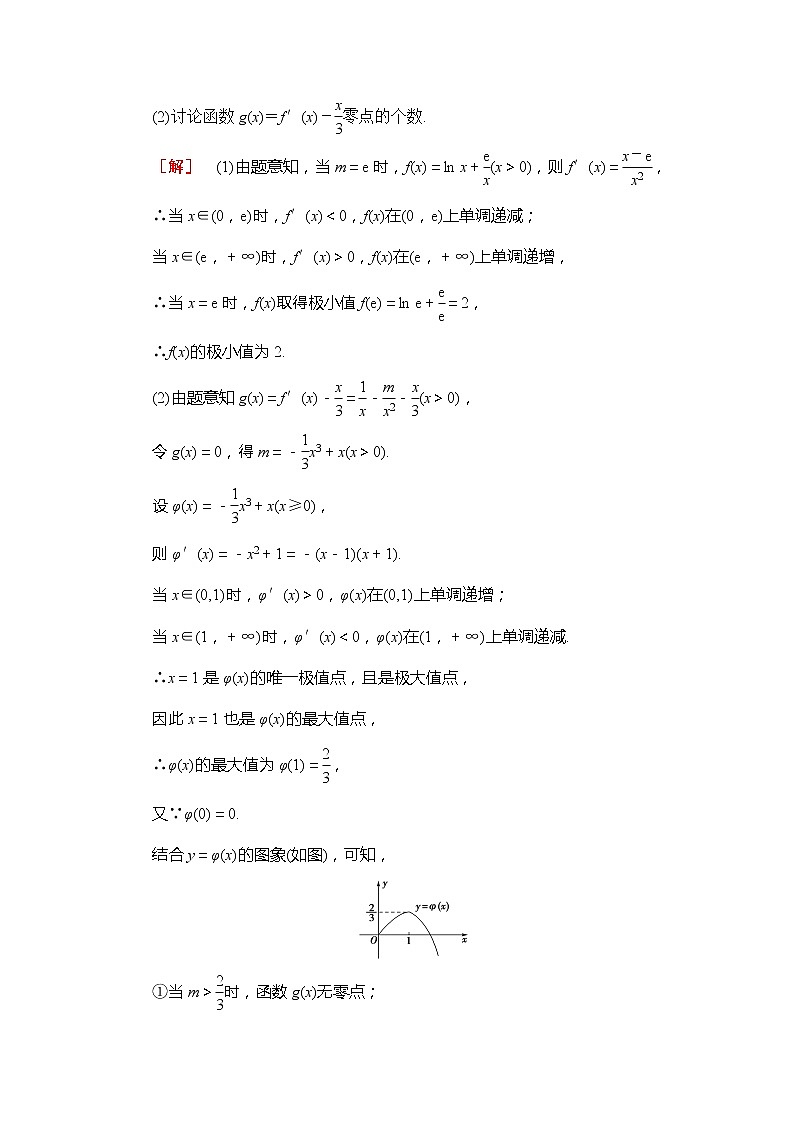 (2)讨论函数 g(x)＝f′(x)－x/3零点的个数.
［解］　(1)由题意知，当 m＝e 时，f(x)＝ln x＋e/x(x＞0)，则 f′(x)＝(x－e)/x²，
∴当 x∈(0，e)时，f′(x)＜0，f(x)在(0，e)上单调递减；
当 x∈(e，＋∞)时，f′(x)＞0，f(x)在(e，＋∞)上单调递增，
∴当 x＝e 时，f(x)取得极小值 f(e)＝ln e＋e/e＝2，
∴f(x)的极小值为 2.
(2)由题意知 g(x)＝f′(x)－x/3＝1/x－m/x²－x/3(x＞0)，
令 g(x)＝0，得 m＝－1/3x³＋x(x＞0).
设 φ(x)＝－1/3x³＋x(x≥0)，
则 φ′(x)＝－x²＋1＝－(x－1)(x＋1).
当 x∈(0,1)时，φ′(x)＞0，φ(x)在(0,1)上单调递增；
当 x∈(1，＋∞)时，φ′(x)＜0，φ(x)在(1，＋∞)上单调递减.
∴x＝1 是 φ(x)的唯一极值点，且是极大值点，
因此 x＝1 也是 φ(x)的最大值点，
∴φ(x)的最大值为 φ(1)＝2/3，
又∵φ(0)＝0.
结合 y＝φ(x)的图象(如图)，可知，
y
2/3 y=φ(x)
O 1 x
①当 m＞2/3时，函数 g(x)无零点；